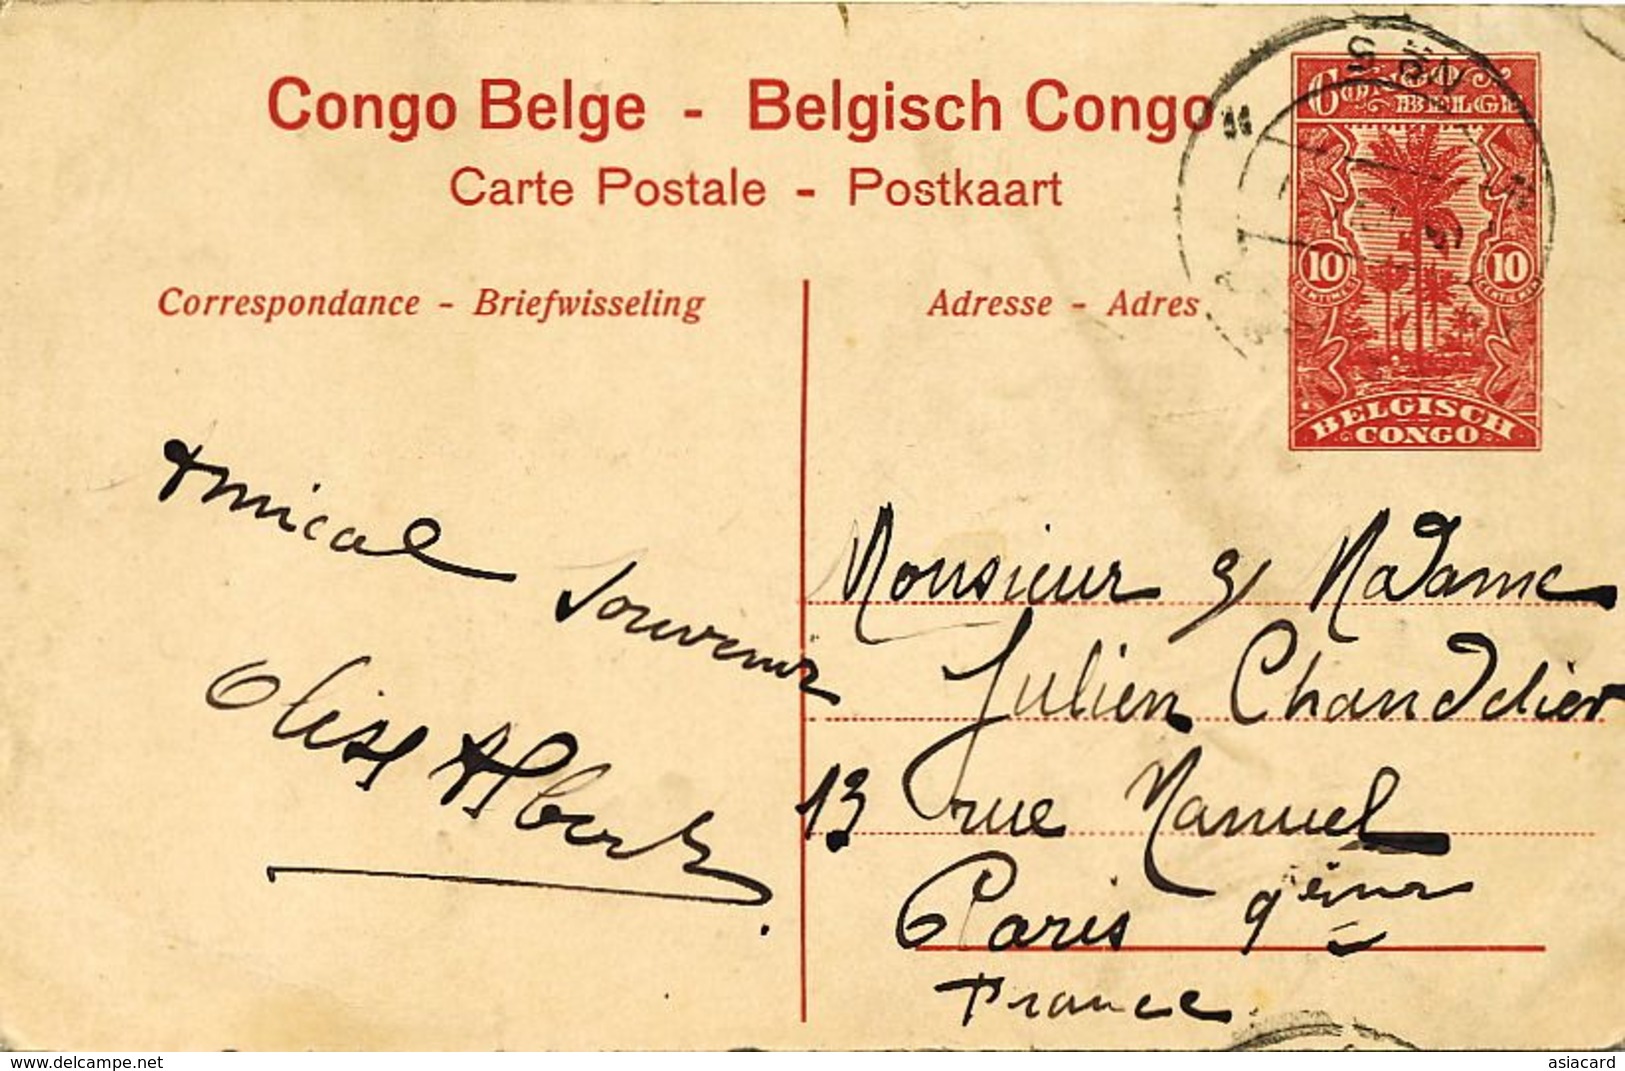 Congo Belge - Belgisch Congo
Carte Postale - Postkaart
CONGO
BELGE
10 10
BELGISCH
CONGO
Correspondance - Briefwisseling
Adresse - Adres
Amical Souvenir
Albert
Monsieur & Madame
Julien Chanddier
13 rue Manuel
Paris 9ème
France
delcampe.net
asiacard